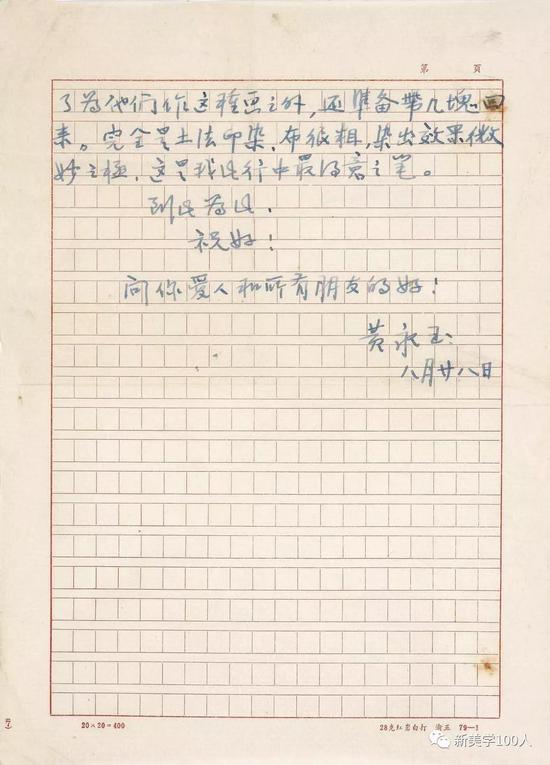 第 頁
了为他们作这种画之外，还準备带几塊回
来。完全是土法印染，布很粗，染出效果微
妙之极，这是我此行中最得意之笔。
到此为止．
祝好！
问你爱人和所有朋友的好！
黄永玉
八月廿八日
20×20=400
28克红彩白打 渝五 79—1
新美学100人